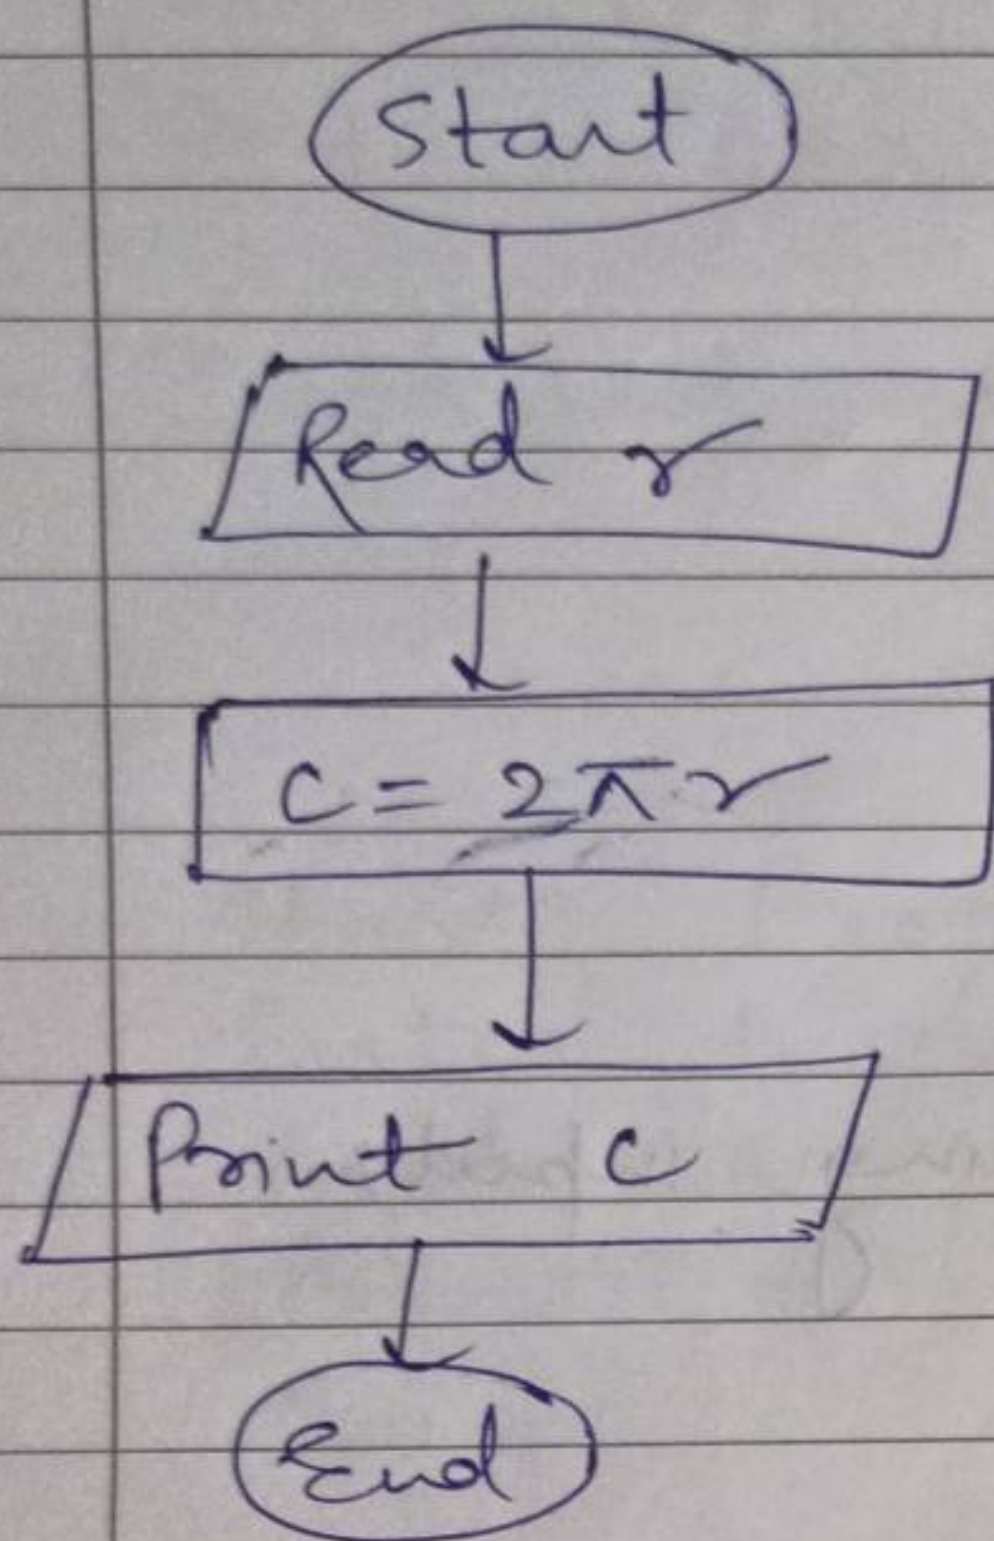 Start
Read r
C = 2πr
Print C
End